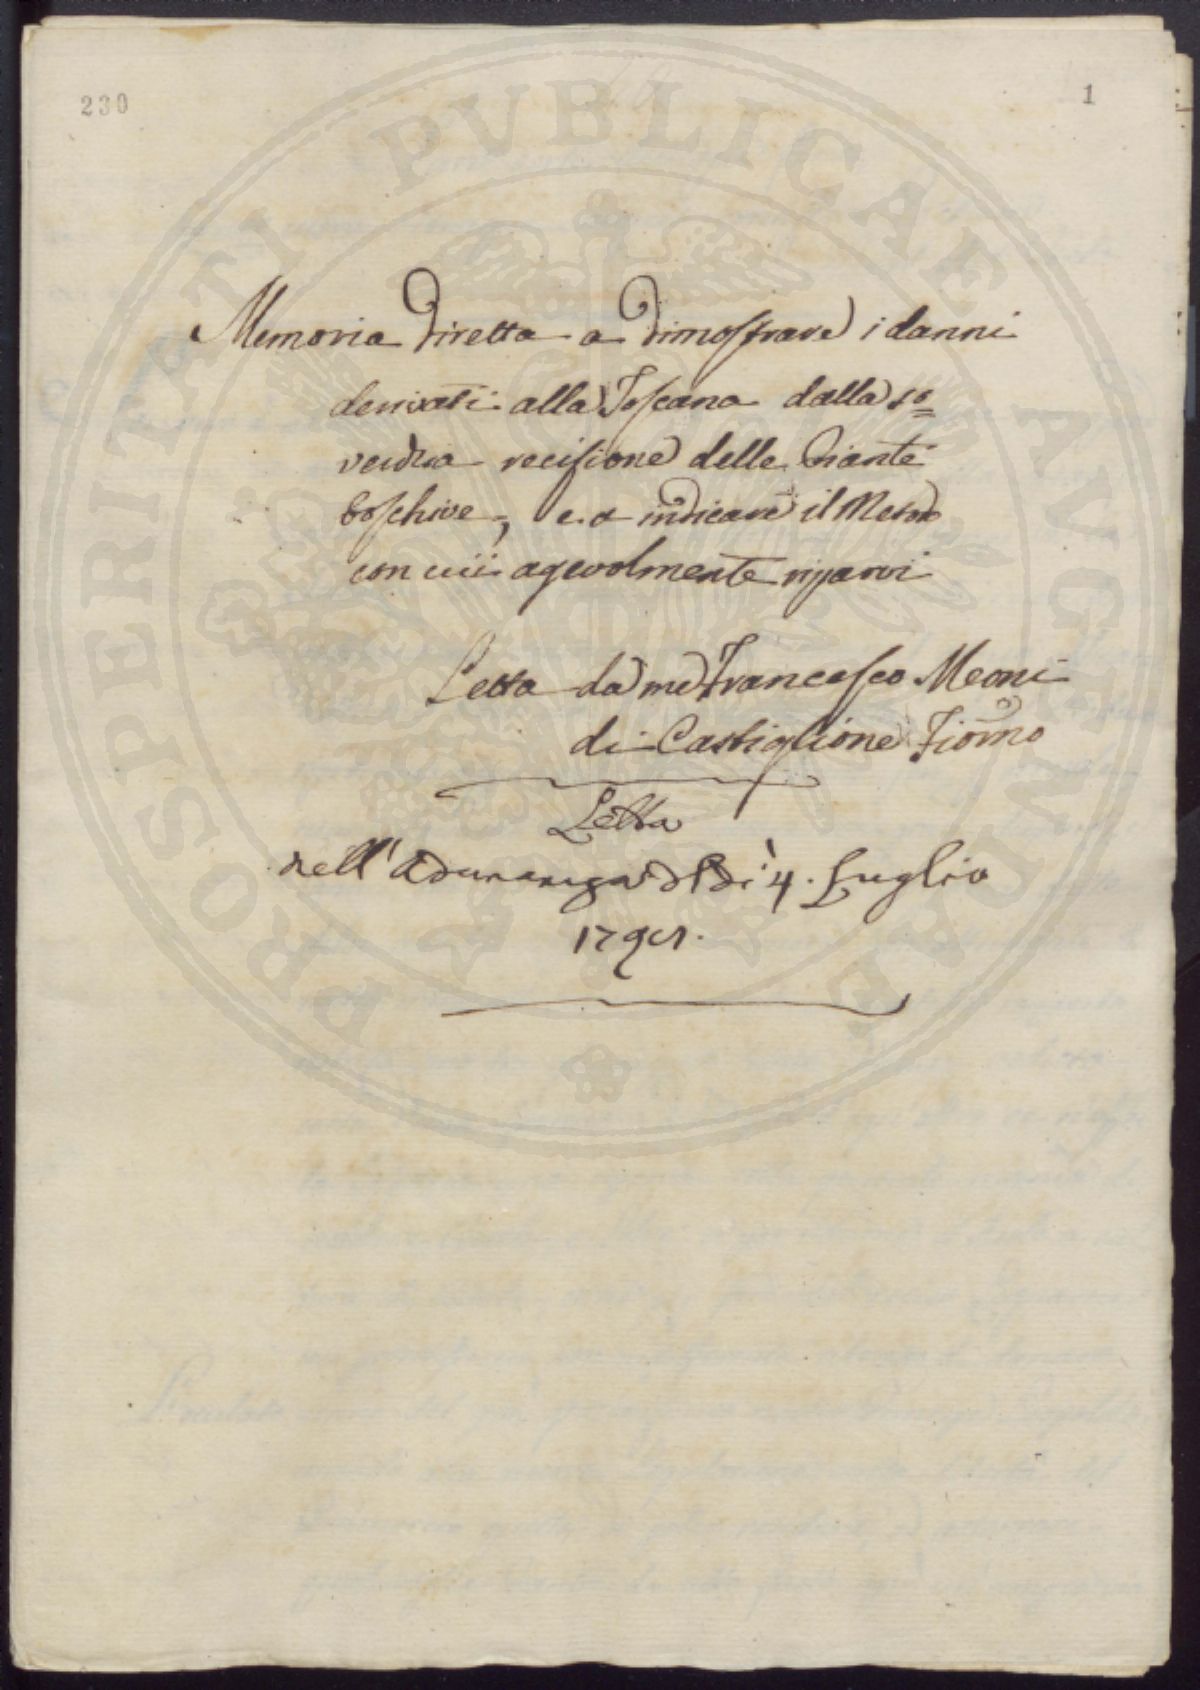 230
1
PROSPERITATI PVBLICAE AVGENDAE
Memoria diretta a dimostrare i danni
derivati alla Toscana dalla so=
verchia recisione delle Piante
boschive, e a indicare il Metodo
con cui agevolmente ripararvi
Letta da me Francesco Meoni
di Castiglione Fior.no
Letta
nell'Adunanza del dì 4. Luglio